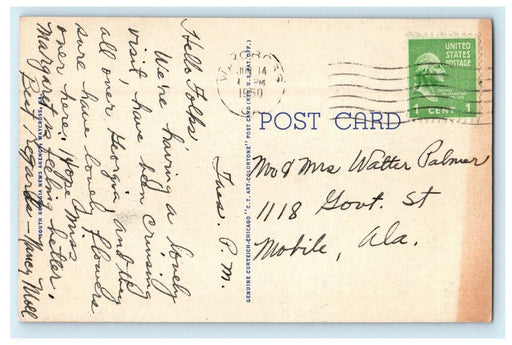 Tues. P.M.
Hello Folks
We're having a lovely
visit, have been cruising
all over Georgia and they
sure have lovely flowers
over here. Hope Miss
Margaret is feeling better.
Best regards - Nancy Moll
SOUTH GEORGIA NEWS AGENCY, WAYCROSS, GA.
GENUINE CURTEICH-CHICAGO "C.T. ART-COLORTONE" POST CARD (REG. U.S. PAT. OFF.)
WAYCROSS
14
PM
1950
UNITED
STATES
POSTAGE
1 CENT 1
POST CARD
Mr & Mrs Walter Palmer
1118 Govt. St
Mobile, Ala.